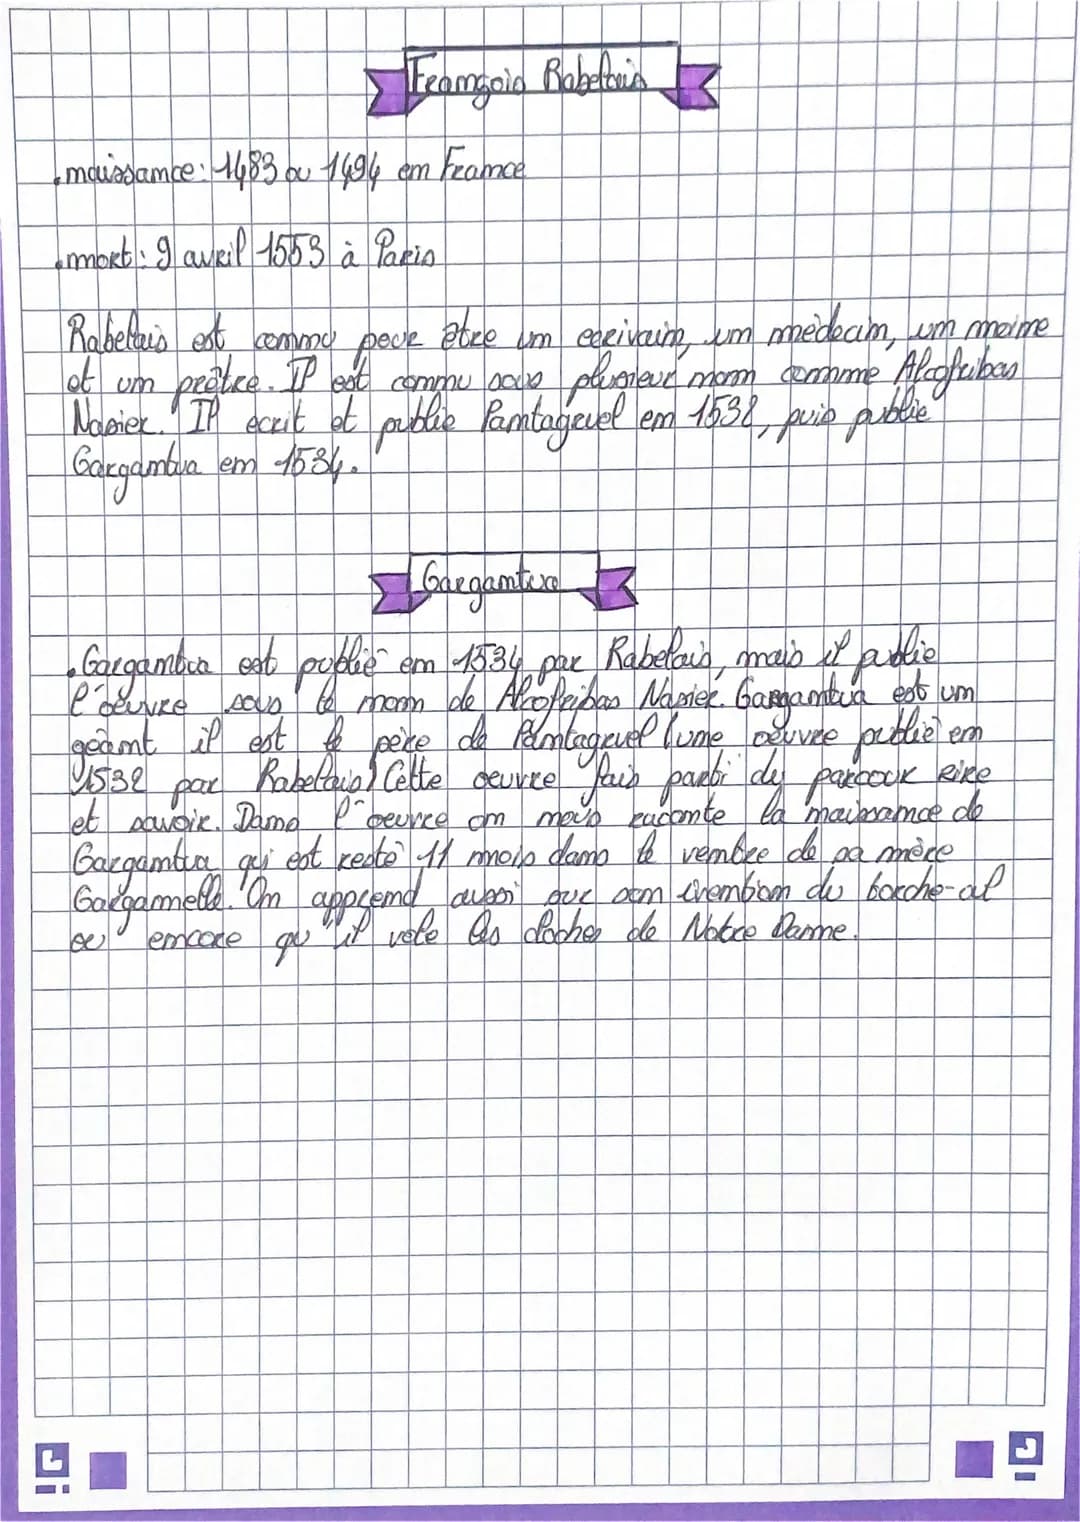 François Rabelais
.naissance: 1483 ou 1494 en France
.mort: 9 avril 1553 à Paris
Rabelais est connu pour être un ecrivain, un médecin, un moine
et un prêtre. Il est connu sous plusieur nom comme Alcofribas
Nasier. Il ecrit et publie Pantagruel en 1532, puis publie
Gargantua en 1534.
Gargantua
.Gargantua est publié en 1534 par Rabelais, mais il publie
l'oeuvre sous le nom de Alcofribas Nasier. Gargantua est un
geant il est le père de Pantagruel (une oeuvre publié en
1532 par Rabelais) Cette oeuvre fais parti du parcour rire
et savoir. Dans l'oeuvre on nous raconte la naissance de
Gargantua qui est resté 11 mois dans le ventre de sa mère
Gargamelle. On apprend aussi que son invention du torche-cul
ou encore qu'il vole les cloches de Notre Dame.